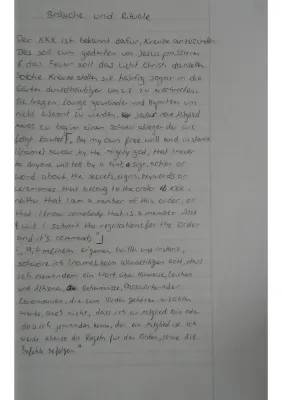 Bräuche und Rituale
Der KKK ist bekannt dafür, Kreuze anzuzünden.
Dies soll zum gedenken von Jesus passieren
& das Feuer soll das Licht Christi darstellen.
Solche Kreuze stellen sie häufig sogar in die
Gärten dunkelhäutiger um sie zu
Sie tragen lange gewänder und Kapuzen um
nicht erkannt zu werden. Jedes neue Mitglied
muss zu beginn einen schwur ablegen der wie
folgt lautet: "By my own free will and instance
I (name) swear by the mighty god, that I never
to anyone will tell by a hint, sign, action or
word about the secrets, signs, keywords or
ceremonies, that belong to the order KKK,
neither that I am a member of this order, or
that I know somebody that is a member. Also
I will submit the regulations for the order
and it's commands"
"Auf meinem eigenen Willen und instanz,
schwöre ich (name) beim allmächtigen Gott, dass
ich niemandem ein Wort über Hinweise, Zeichen
und Geheimnisse, Passwörter oder
Zeremonien, die zum Orden gehören erzählen
werde, und nicht, dass ich ein Mitglied bin oder
dass ich jemanden kenne, der ein Mitglied ist. Ich
werde ebenso die Regeln für den Orden, sowie die
Befehle befolgen."